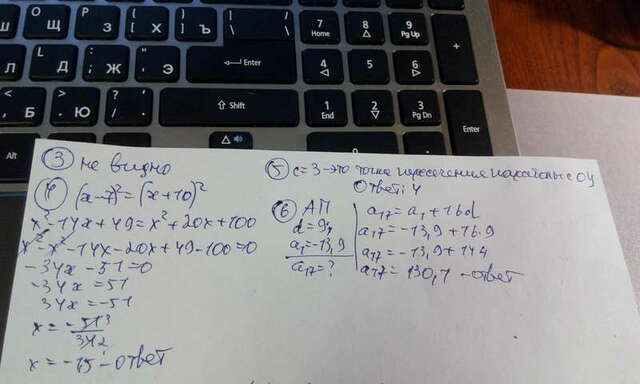 О
Щ
З
Х [
Ъ ]
\
7 Home
8
9 Pg Up
+
Л
Д
Ж ;
Э
Enter
4
5
6
Б <
Ю >
?
Shift
1 End
2
3 Pg Dn
Alt
0
Enter
③ не видно
④ (x-7)²=(x+10)²
x²-14x+49=x²+20x+100
x²-x²-14x-20x+49-100=0
-34x-51=0
-34x=51
34x=-51
x=-51 3/34 2
x=-1,5-ответ
⑤ c=3-это точка пересечения параболы с OY
Ответ: 4
⑥ АП
d=9,
a₁=-13,9
a₁₇=?
a₁₇=a₁+16d
a₁₇=-13,9+16·9
a₁₇=-13,9+144
a₁₇=130,1-ответ